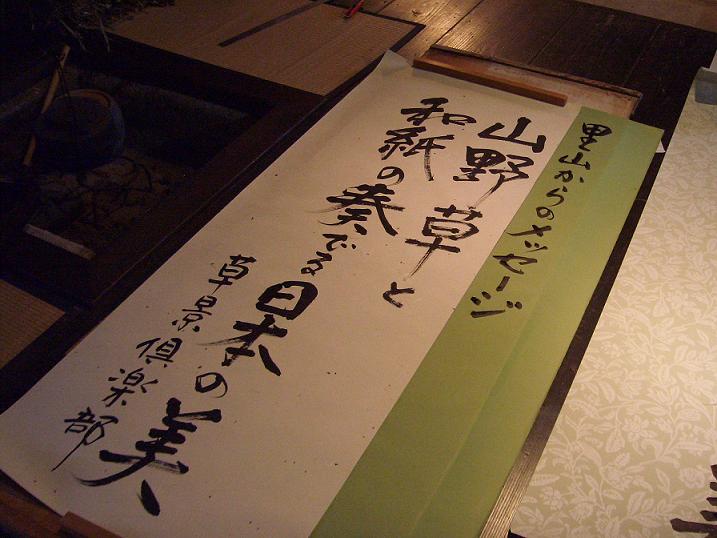 里山からのメッセージ
山野草と
和紙の奏でる日本の美
草景倶楽部